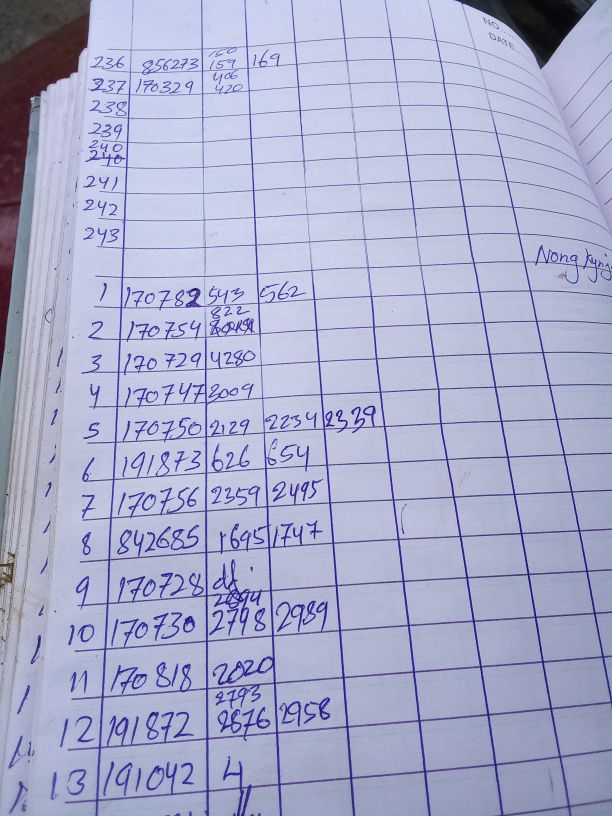 NO
DATE
150
236 856273 159 169
406
237 170329 420
238
239
240
240
241
242
243
1 170782 543 562
822
2 170754
3 170729 4280
4 170747 3009
5 170750 2129 2234 2339
6 191873 626 654
7 170756 2359 2495
8 842685 1695 1747
9 170728 df
2894
10 170730 2798 2989
11 170818 2020
2793
12 191872 2876 2958
13 191042 4